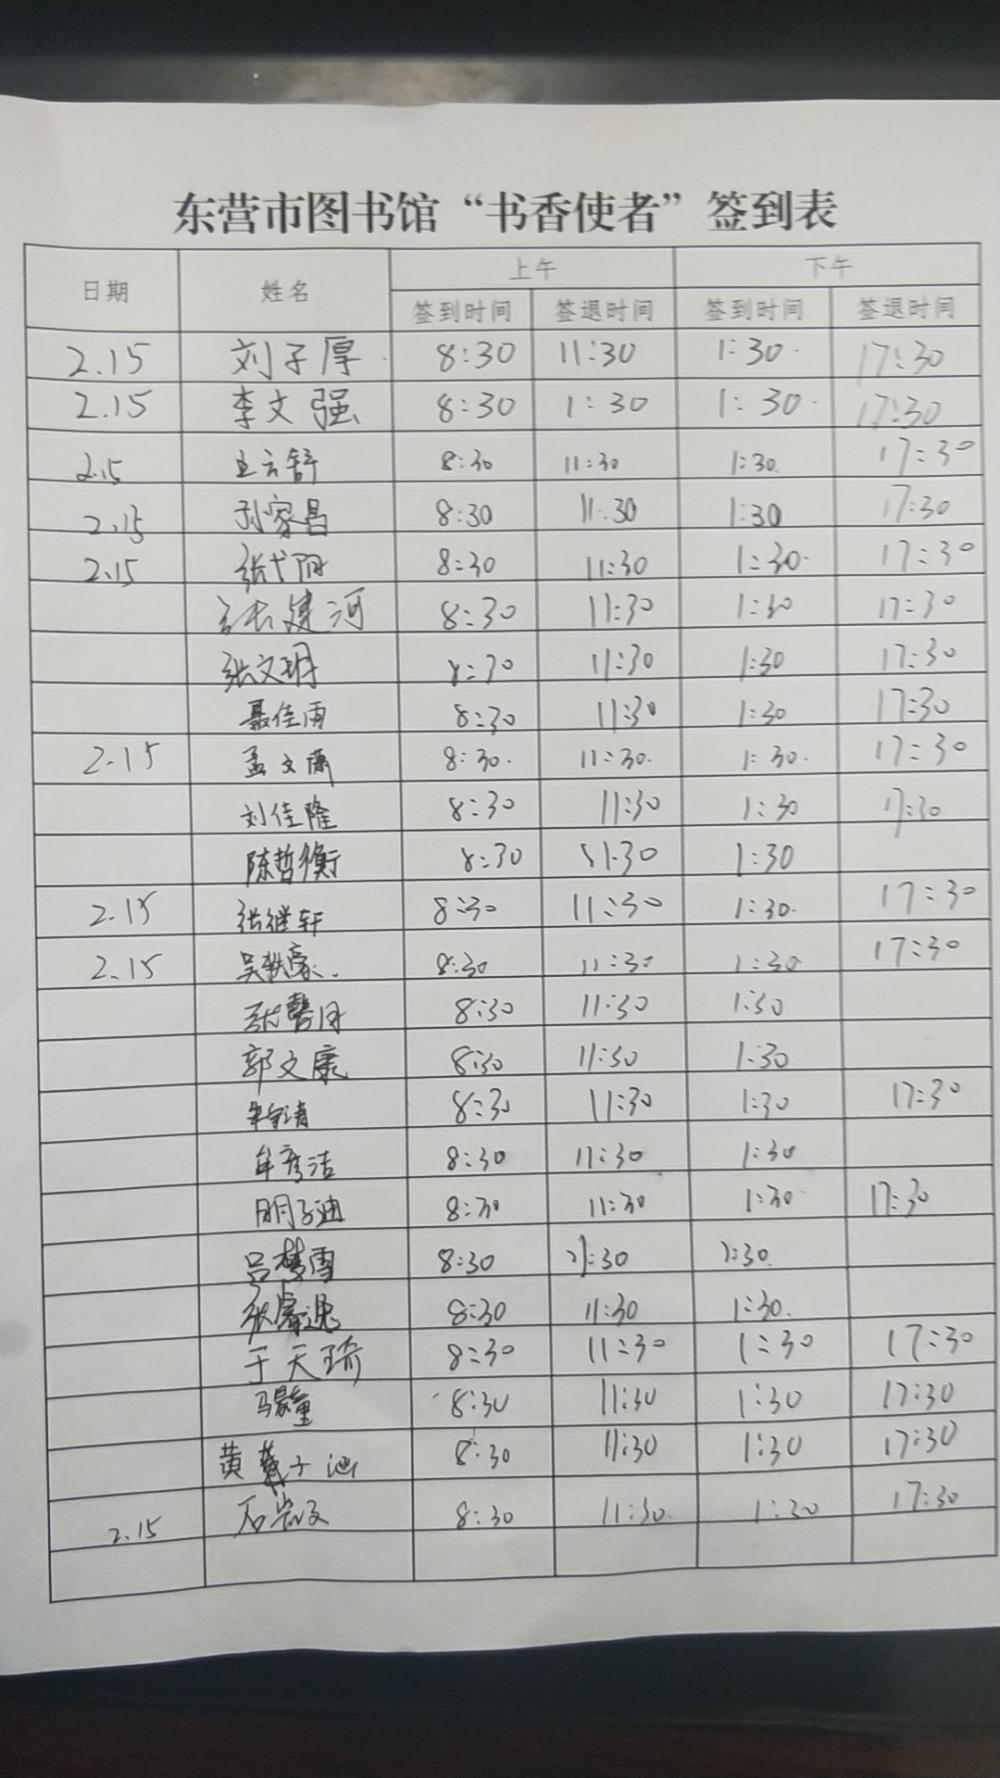 东营市图书馆“书香使者”签到表
日期 姓名 上午 下午
签到时间 签退时间 签到时间 签退时间
2.15 刘子厚 8:30 11:30 1:30 17:30
2.15 李文强 8:30 1:30 1:30 17:30
2.15 王云舒 8:30 11:30 1:30 17:30
2.15 孙家昌 8:30 11:30 1:30 17:30
2.15 8:30 11:30 1:30 17:30
建河 8:30 11:30 1:30 17:30
张文玥 8:30 11:30 1:30 17:30
聂佳雨 8:30 11:30 1:30 17:30
2.15 孟文萧 8:30 11:30 1:30 17:30
刘佳隆 8:30 11:30 1:30 17:30
陈哲衡 8:30 11:30 1:30
2.15 张继轩 8:30 11:30 1:30 17:30
2.15 8:30 11:30 1:30 17:30
张馨月 8:30 11:30 1:30
郭文康 8:30 11:30 1:30
8:30 11:30 1:30 17:30
牟彦洁 8:30 11:30 1:30
明子迪 8:30 11:30 1:30 17:30
吕梦雪 8:30 11:30 1:30
张睿逸 8:30 11:30 1:30
于天琦 8:30 11:30 1:30 17:30
8:30 11:30 1:30 17:30
黄 子 8:30 11:30 1:30 17:30
2.15 8:30 11:30 1:30 17:30